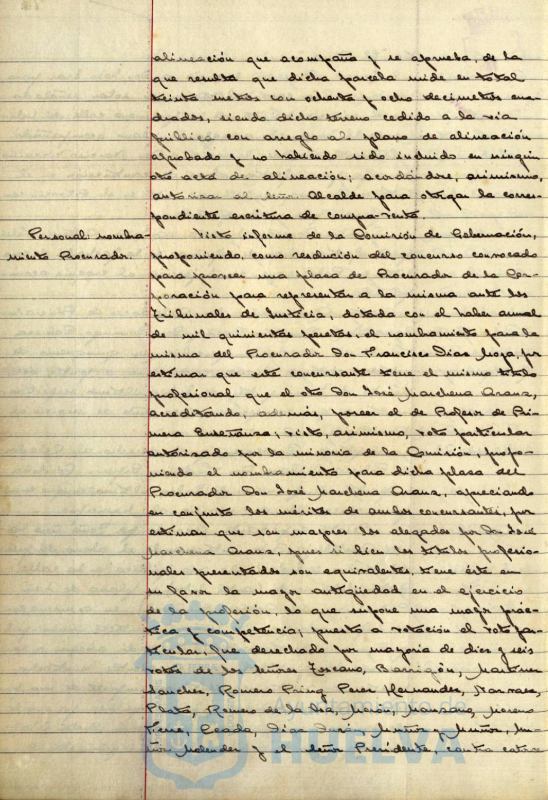 alineación que acompaña y se aprueba, de la
que resulta que dicha parcela mide en total
treinta metros con ochenta y ocho decímetros cua-
drados, siendo dicho terreno cedido a la vía
pública con arreglo al plano de alineación
aprobado y no habiendo sido incluido en ningún
otro acta de alineación; acordándose, asimismo,
autorizar al Señor Alcalde para otorgar la corres-
pondiente escritura de compra-venta.
Personal: nombra-
miento Procurador.
Visto informe de la Comisión de Gobernación,
proponiendo, como resolución del concurso convocado
para proveer una plaza de Procurador de la Cor-
poración para representar a la misma ante los
Tribunales de Justicia, dotada con el haber anual
de mil quinientas pesetas, el nombramiento para la
misma del Procurador Don Francisco Díaz Moya, por
estimar que este concursante tiene el mismo título
profesional que el otro Don José Marchena Aranz,
acreditando, además, poseer el de Profesor de Pri-
mera Enseñanza; visto, asimismo, voto particular
autorizado por la minoría de la Comisión, propo-
niendo el nombramiento para dicha plaza del
Procurador Don José Marchena Aranz, apreciando
en conjunto los méritos de ambos concursantes, por
estimar que son mayores los alegados por Don José
Marchena Aranz, pues si bien los títulos profesio-
nales presentados son equivalentes, tiene éste en
su favor la mayor antigüedad en el ejercicio
de la profesión, lo que supone una mayor prác-
tica y competencia; puesto a votación el voto par-
ticular, fue desechado por mayoría de diez y seis
votos de los Señores Toscano, Barrigón, Martínez
Sánchez, Romero Perez Hernández, Narváez,
Plata, Romero de la Morón, Manzano, Moreno
Díaz Muñoz y Muñoz, Mu-
ñoz y el Señor Presidente, contra cator-
HUELVA